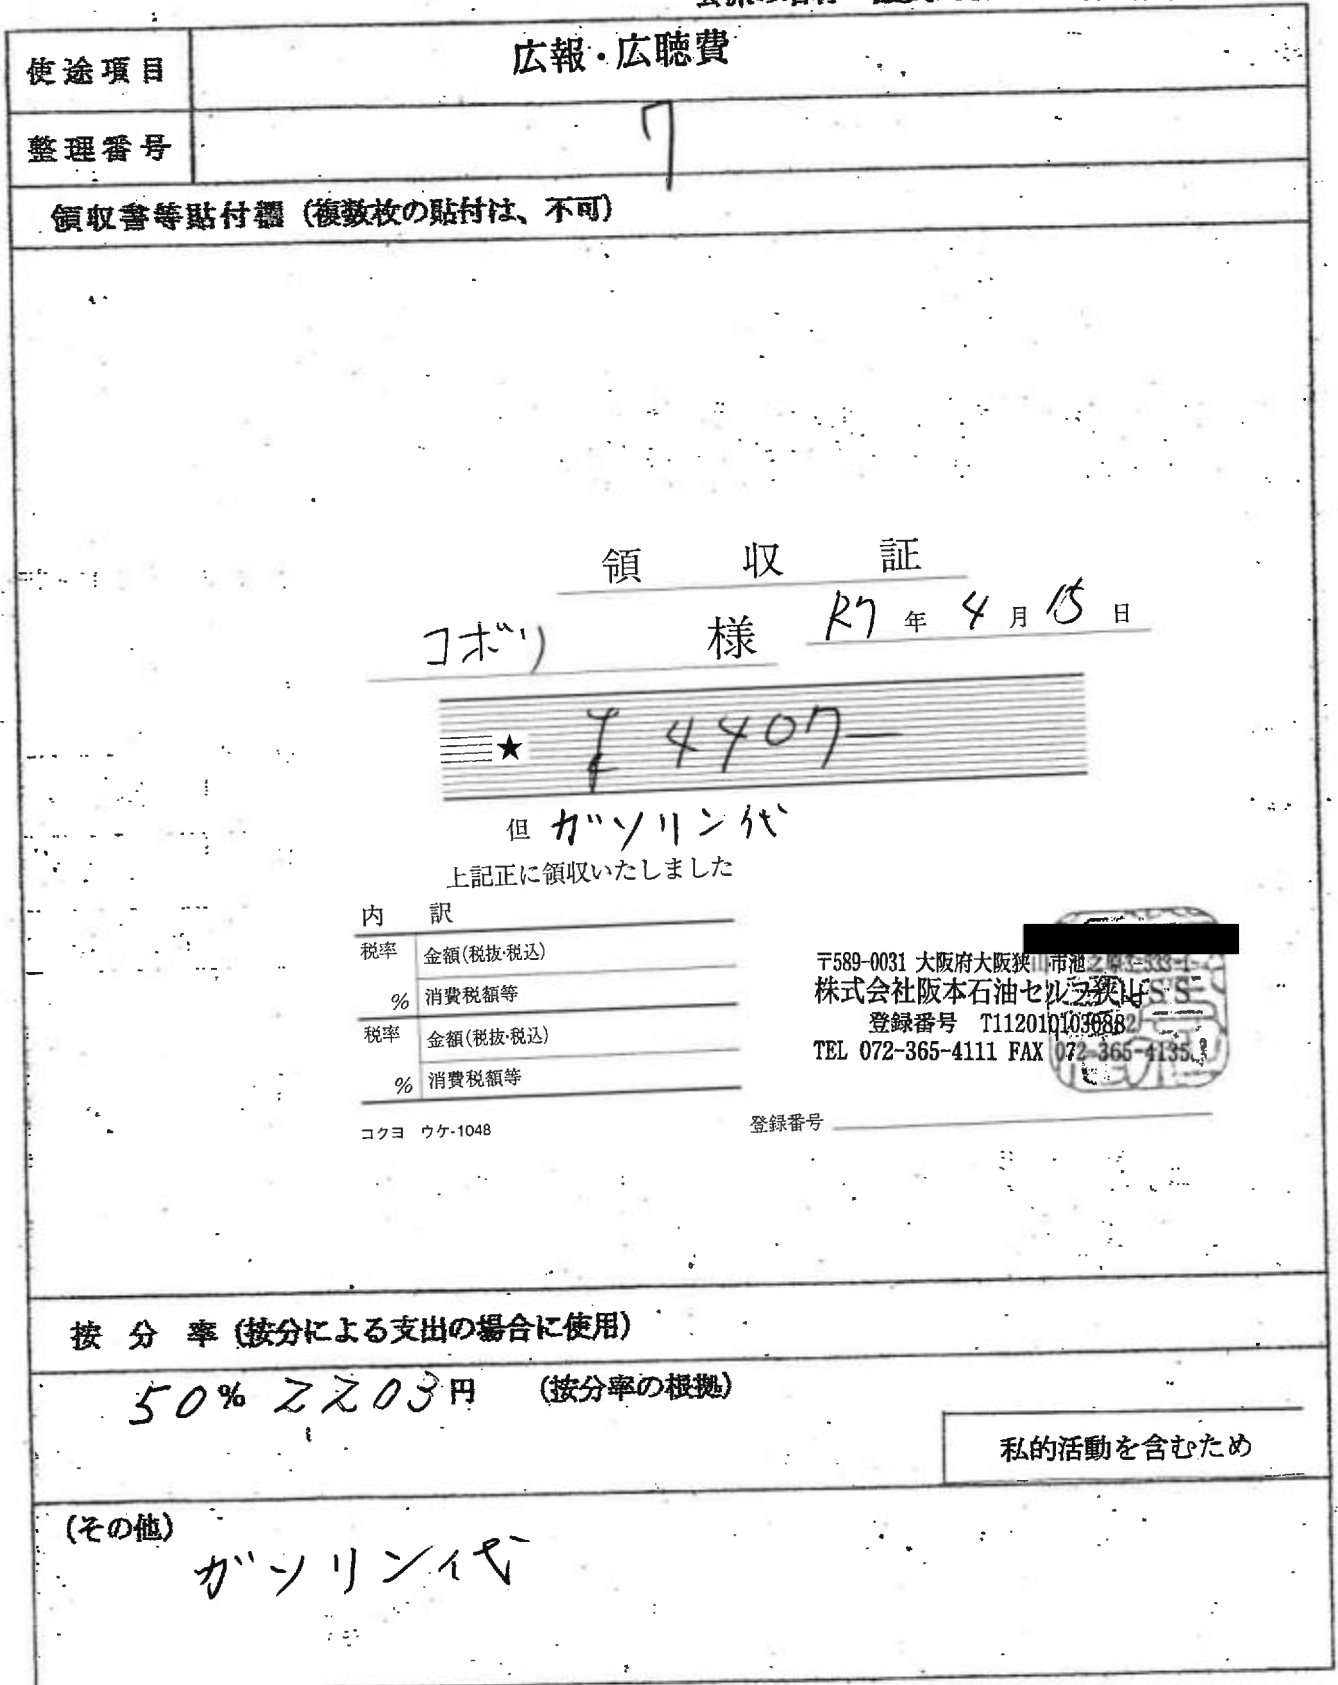 使途項目 広報・広聴費
整理番号 7
領収書等貼付欄（複数枚の貼付は、不可）
領 収 証
コボリ 様 R7年4月15日
★ ¥4407-
但 ガソリン代
上記正に領収いたしました
内 訳
税率 金額(税抜・税込)
% 消費税額等
税率 金額(税抜・税込)
% 消費税額等
〒589-0031 大阪府大阪狭山市池之原3-533-1
株式会社阪本石油セルフ狭山SS
登録番号
TEL 072-365-4111 FAX 072-365-4135
コクヨ ウケ-1048
登録番号
按 分 率（按分による支出の場合に使用）
50% 2203円 （按分率の根拠）
私的活動を含むため
（その他）
ガソリン代